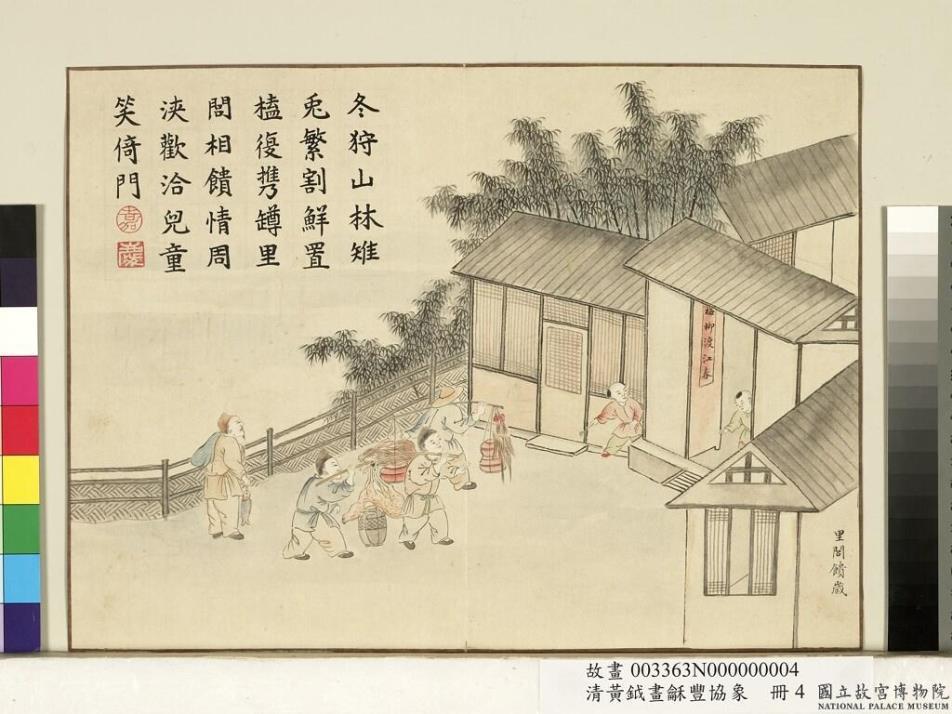 冬狩山林雉
兎繁割鮮置
榼復携罇里
閭相饋情周
浹歡洽兒童
笑倚門
嘉
梅柳渡江春
里閭饋歲
故畫 003363N000000004
清黃鉞畫龢豐協象 冊 4
國立故宮博物院
NATIONAL PALACE MUSEUM